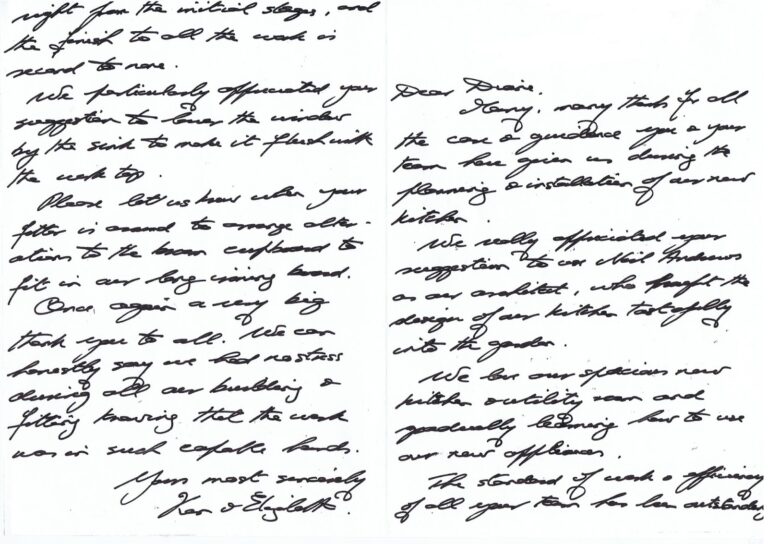 Dear Diane,
Many, many thanks for all
the care & guidance you & your
team have given us during the
planning & installation of our new
kitchen.
We really appreciated your
suggestion to use Neil Andrews
as our architect, who brought the
design of our kitchen tastefully
into the garden.
We love our spacious new
kitchen & utility room and
gradually learning how to use
our new appliances.
The standard of work & efficiency
of all your team has been outstanding
right from the initial stages, and
the finish to all the work is
second to none.
We particularly appreciated your
suggestion to lower the window
by the sink to make it flush with
the work top.
Please let us know when your
fitter is around to arrange alter-
ations to the broom cupboard to
fit in our long ironing board.
Once again a very big
thank you to all. We can
honestly say we had no stress
during all our building &
fitting knowing that the work
was in such capable hands.
Yours most sincerely
Ken & Elizabeth.